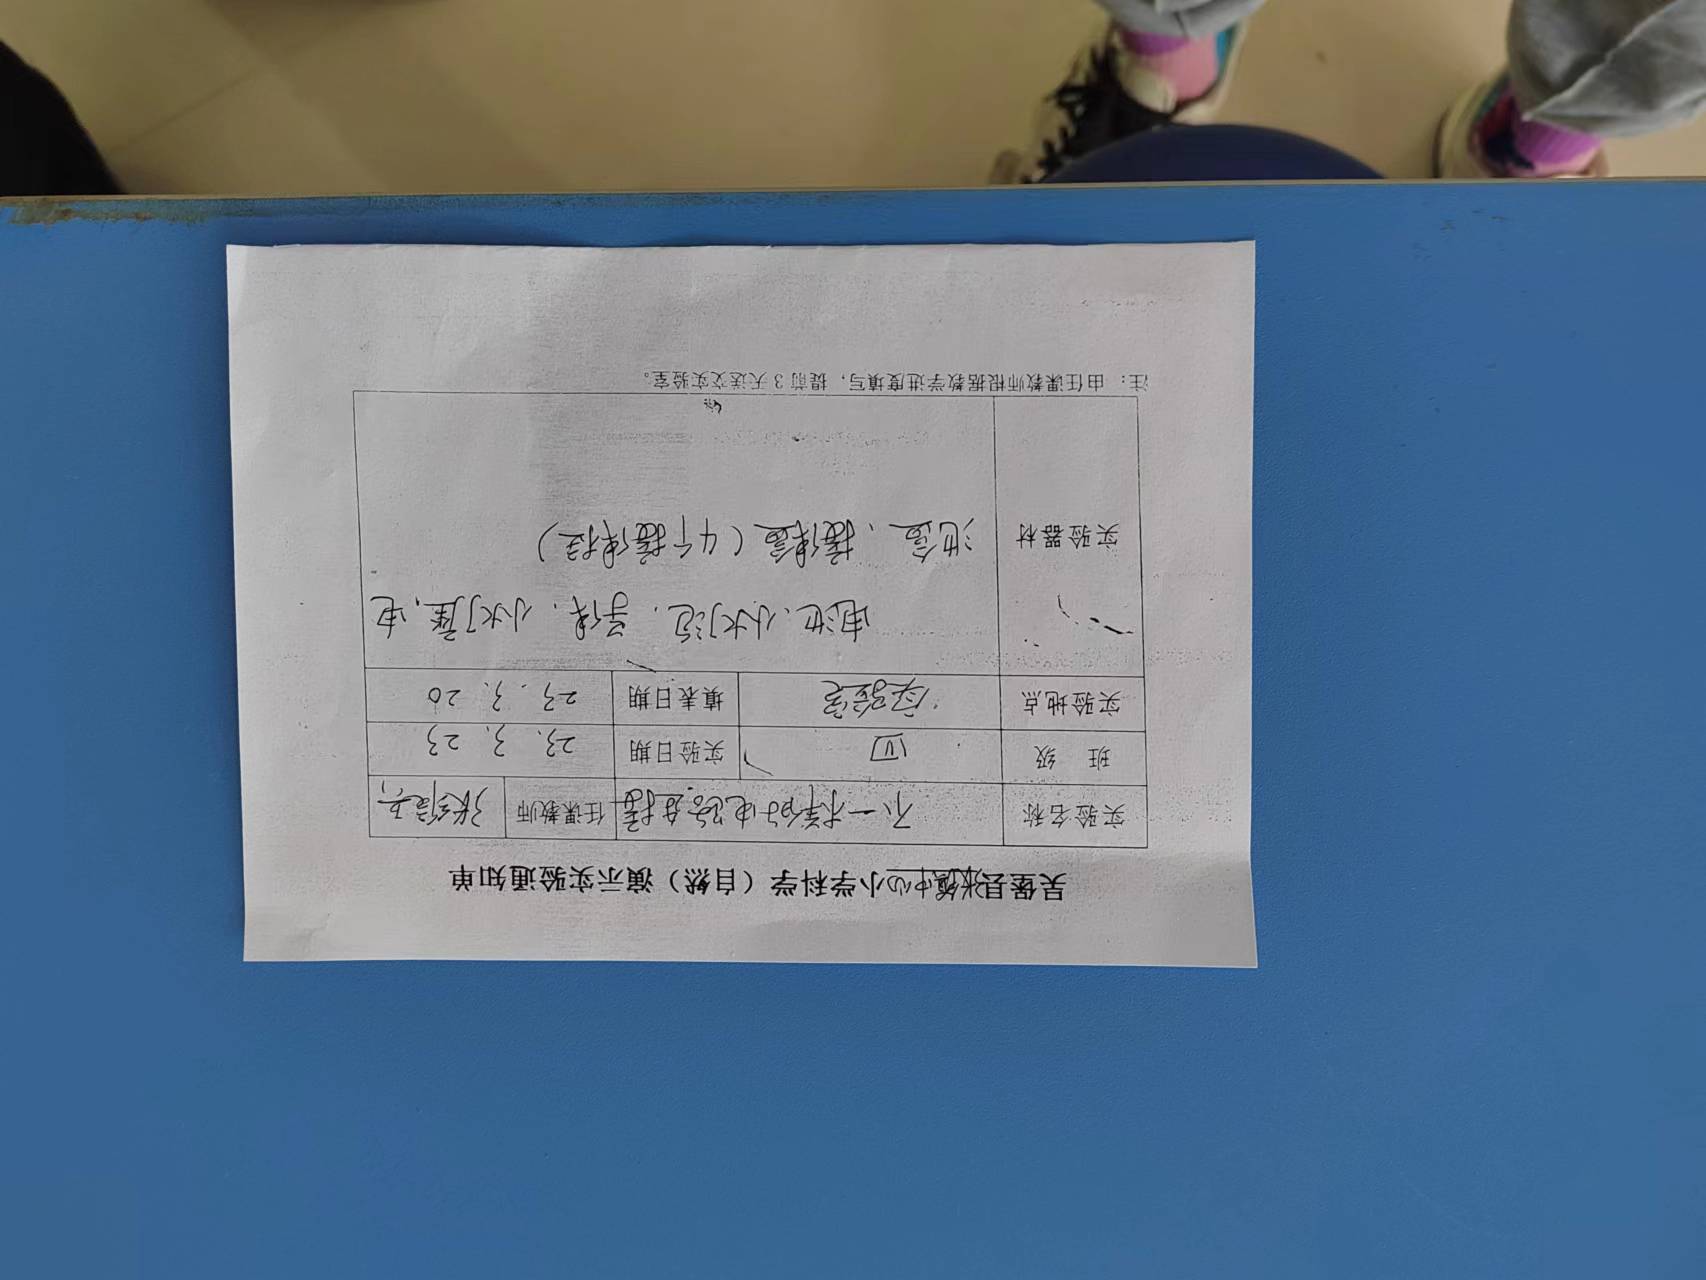 吴堡县张家山镇中心小学科学（自然）演示实验通知单
实验名称 不一样的电路连接 任课教师
班 级 四 实验日期 23.3.23
实验地点 实验室 填表日期 23.3.20
实验器材 电池、小灯泡、导线、小灯座、电
池盒、接线盒（4个接线柱）
注：由任课教师根据教学进度填写，提前3天送交实验室。